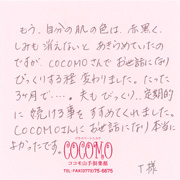 もう、自分の肌の色は、赤黒く、
しみも消えないと あきらめていたの
ですが、COCOMOさんで お世話になり
びっくりする程 変わりました。たった
3ヶ月で‥‥。夫もびっくり、定期的
に続ける事を すすめてくれました。
COCOMOさんに お世話になり 本当に
よかったです。
COCOMO
ココモ山手倶楽部
T様